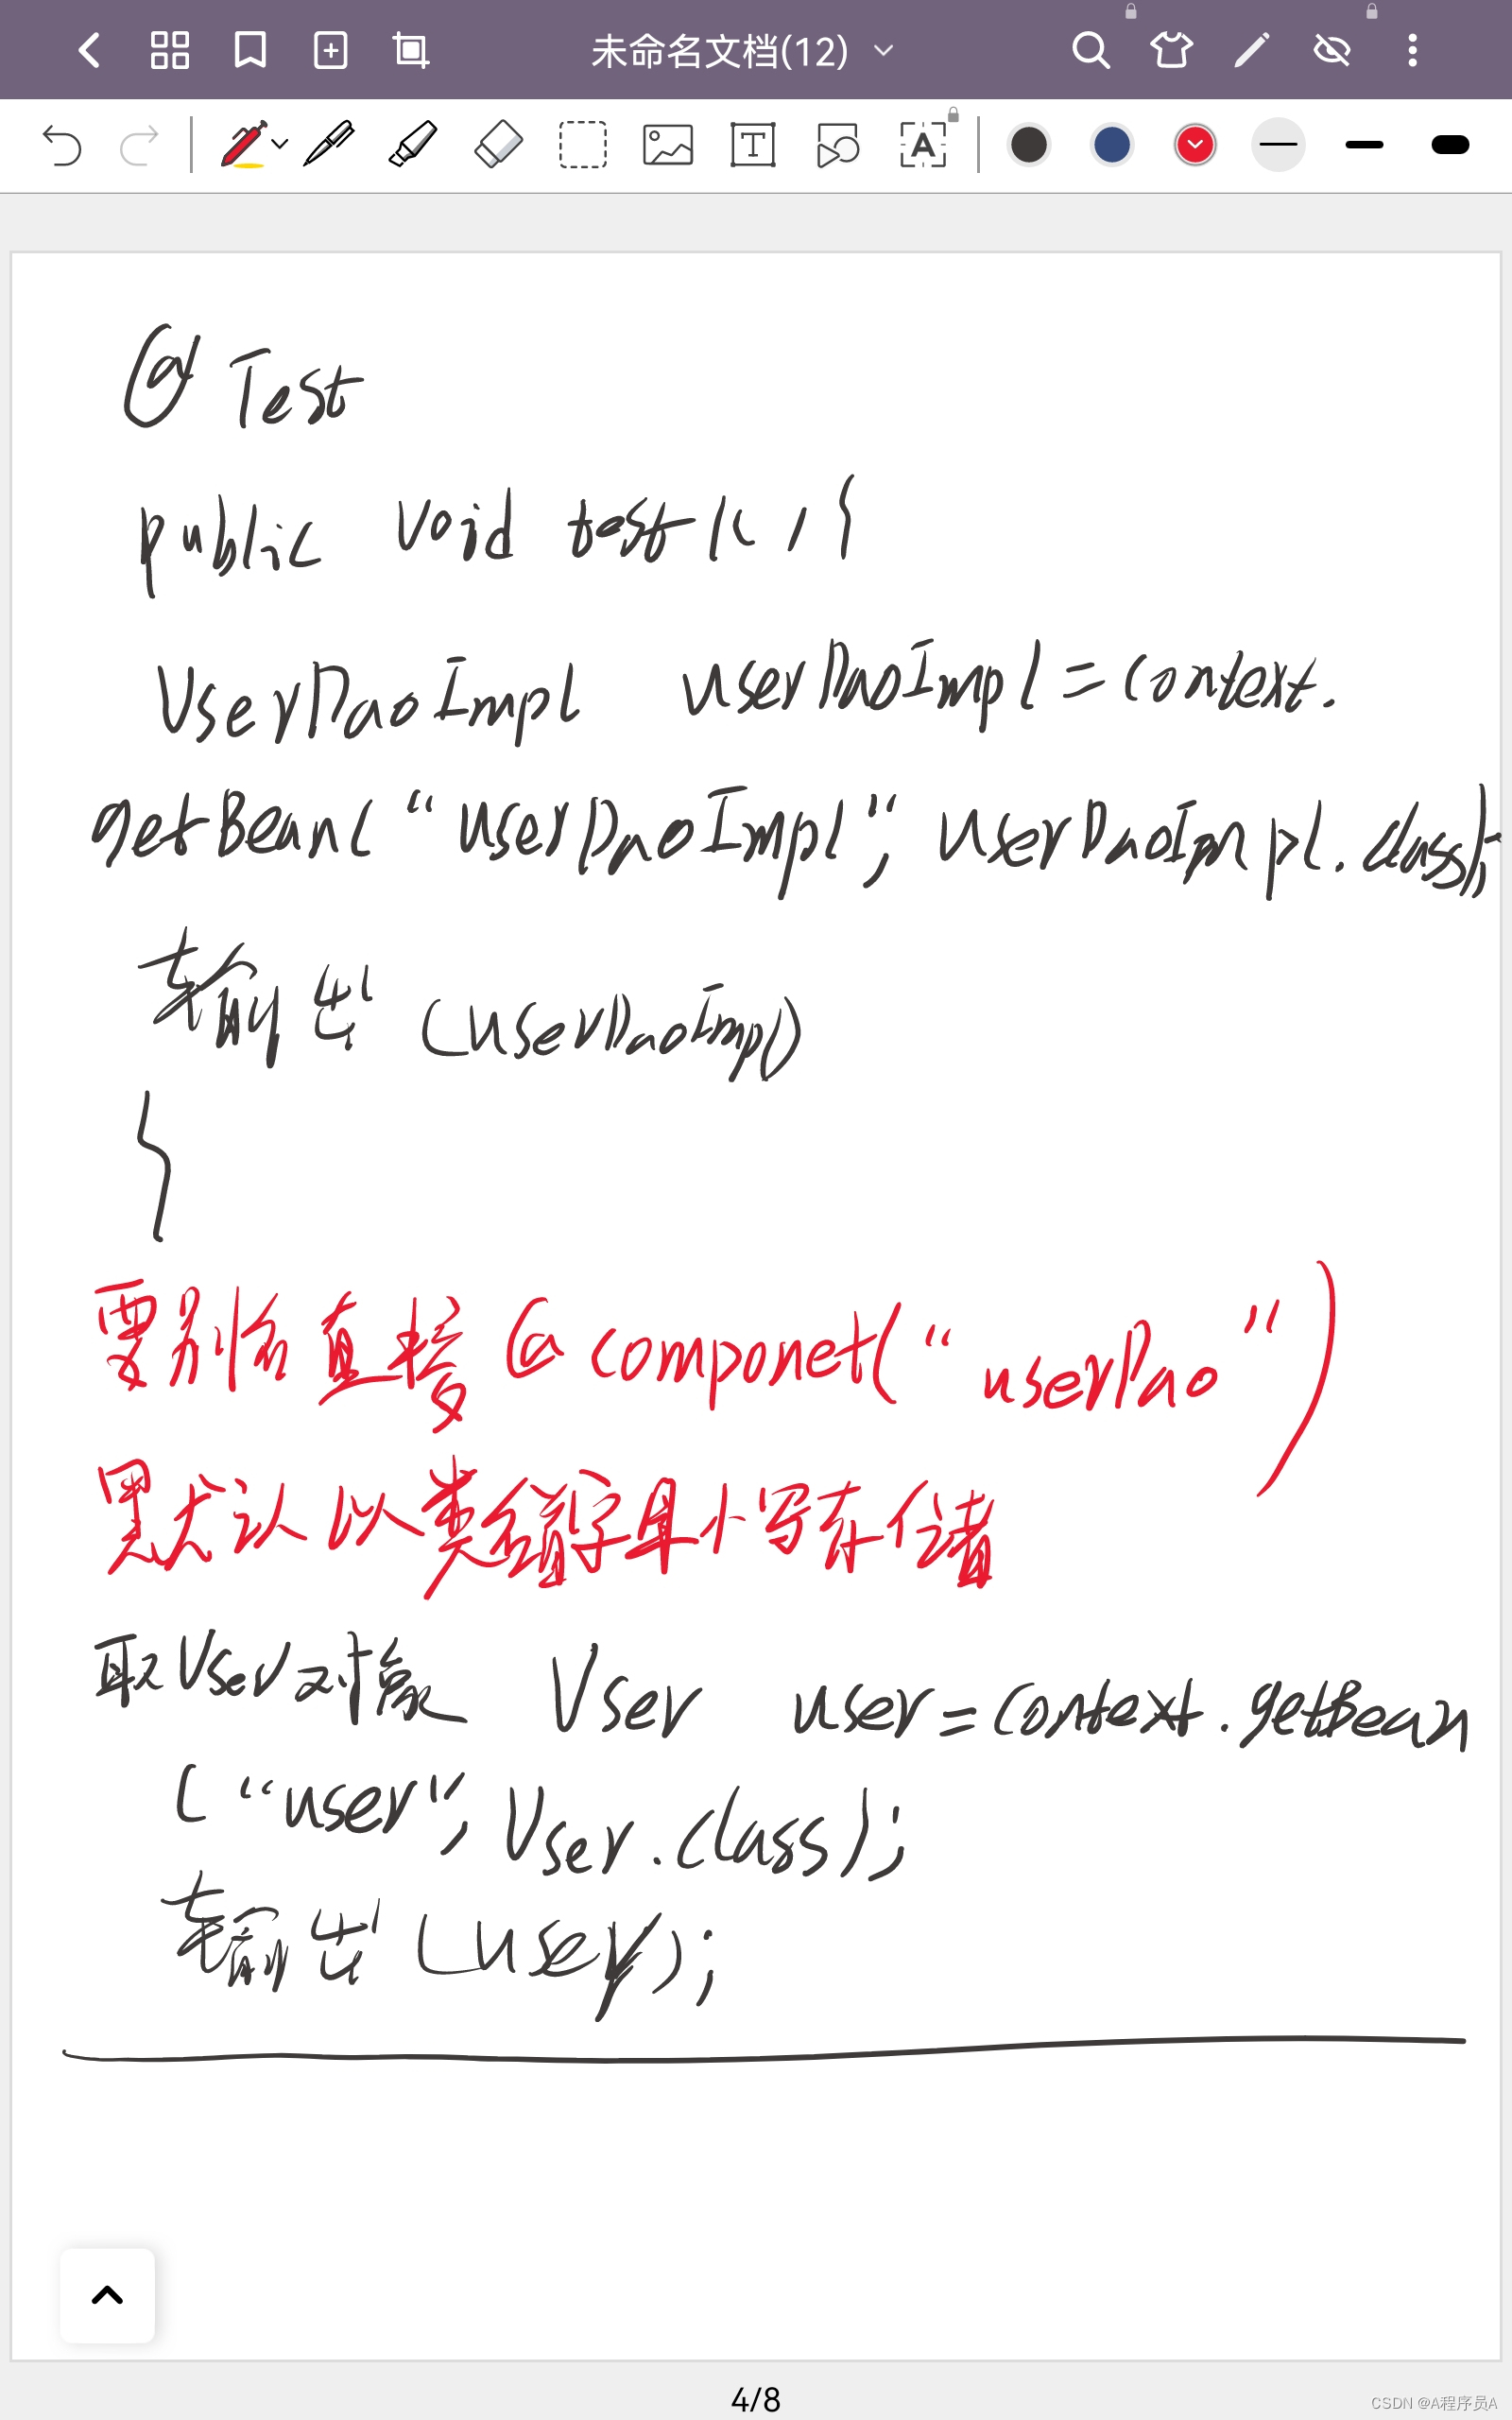 未命名文档(12)
@Test
public void test1(){
UserDaoImpl userDaoImpl=context.
getBean("userDaoImpl", userDaoImpl.class);
输出(userDaoImpl)
}
要别名直接@componet("userDao")
默认以类名首字母小写存储
取User对象 User user=context.getBean
("user", User.class);
输出(user);
4/8
CSDN @A程序员A